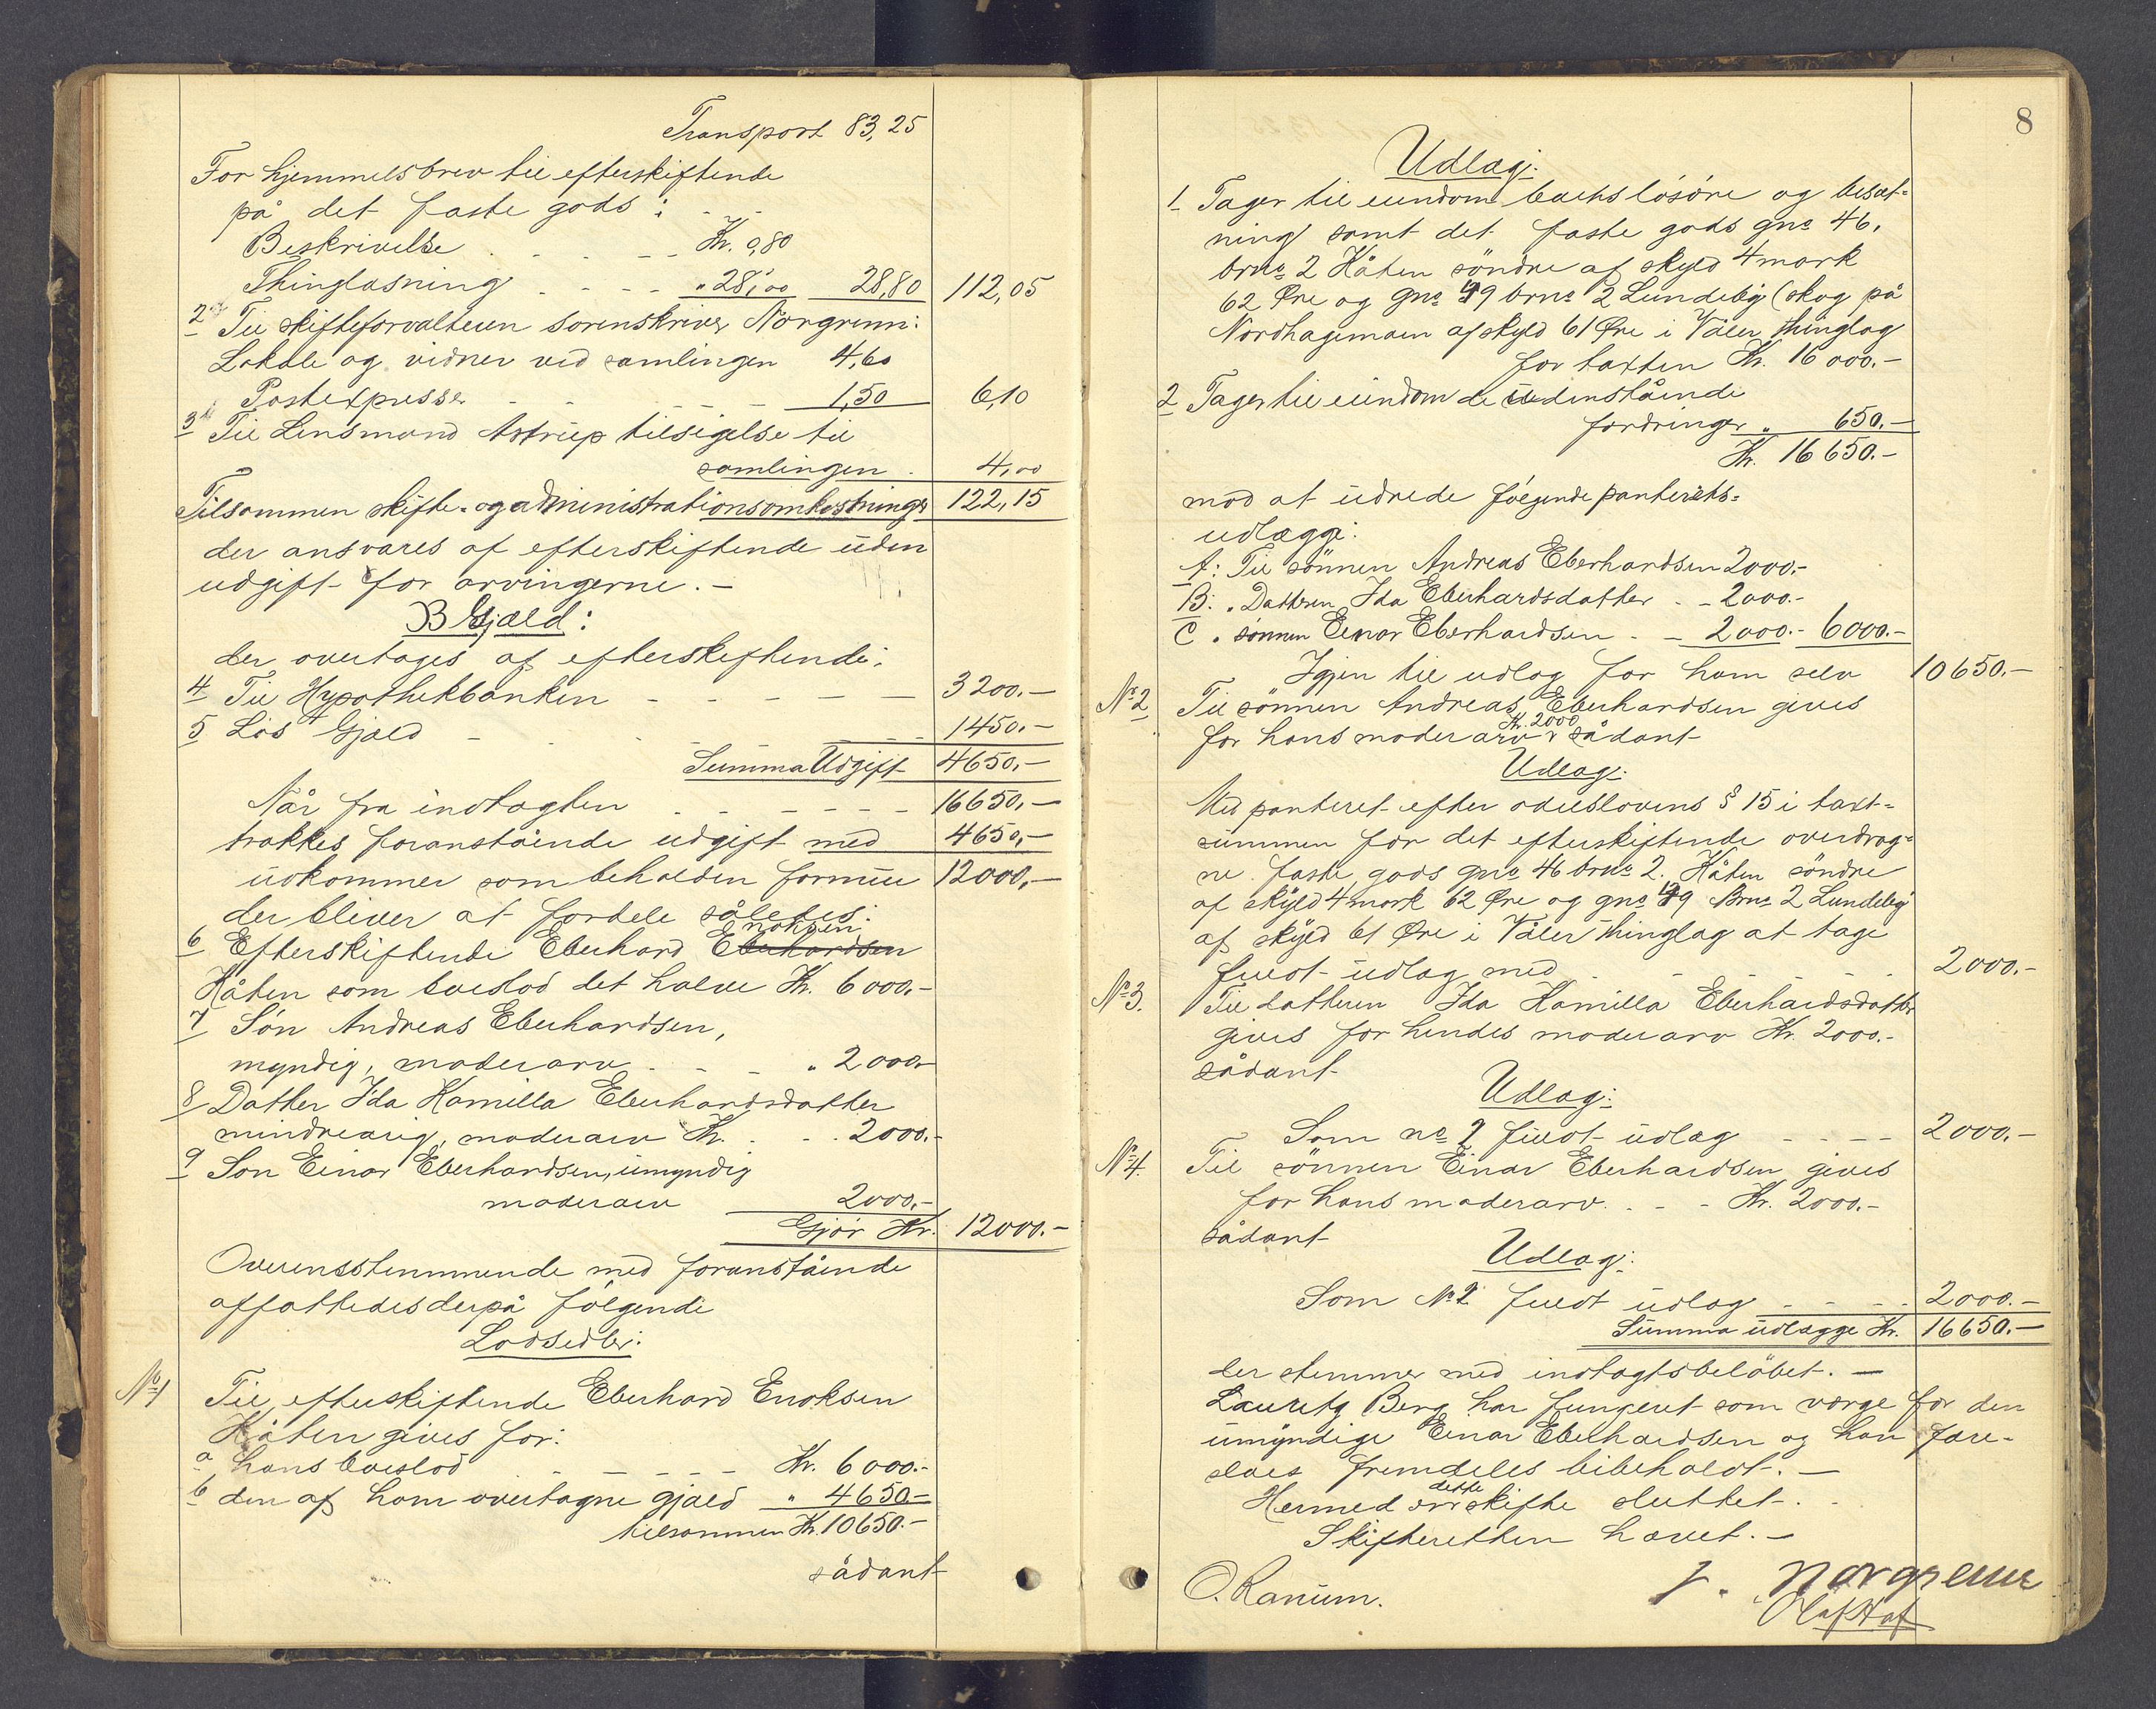 Transport 83,25
For hjemmelsbrev til efterskiftende
på det faste gods:
Beskrivelse Kr. 0,80
Thinglæsning „ 28,00 28,80 112,05
2 Til skifteforvalteren sorenskriver Nørgrenn:
Lokale og vidner ved samlingen 4,60
Postexpresse 1,50 6,10
3 Til Lensmand Astrup tilsigelse til
samlingen 4,00
Tilsammen skifte- og administrationsomkostninger 122,15
der ansvares af efterskiftende uden
udgift for arvingerne.-
B Gjæld:
der overtages af efterskiftende:
4 Til Hypothekbanken 3200.-
5 Løs Gjæld 1450.-
Summa Udgift 4650,-
Når fra indtægten 16650,-
trækkes foranstående udgift med 4650,-
udkommer som beholden formue 12000,-
der bliver at fordele således:
noksen
6 Efterskiftende Eberhard Eberhardsen
Håten som boeslod det halve Kr. 6000.-
7 Søn Andreas Eberhardsen,
myndig, moderarv „ 2000-
8 Datter Ida Kamilla Eberhardsdatter
mindreårig, moderarv Kr. 2000.-
9 Søn Einar Eberhardsen, umyndig
moderarv 2000.-
Gjør Kr. 12000.-
Overensstemmende med foranstående
affattedes derpå følgende
Lodsedler:
No 1 Til efterskiftende Eberhard Enoksen
Håten gives for:
a hans boeslod Kr. 6000.-
b den af ham overtagne gjæld „ 4650-
tilsammen Kr. 10650.-
sådant
8
Udlæg:
1 Tager til eiendom boets løsøre og besæt-
ning samt det faste gods gno 46,
brno 2 Håten søndre af skyld 4 mark
62 Øre og gno 49 brno 2 Lundeby (skog på
Nordhagemoen af skyld 61 Øre i Våler thinglag
for taxten Kr. 16000.-
2 Tager til eiendom de udenstående
fordringer „ 650.-
Kr. 16650.-
mod at udrede følgende panterets-
udlægge:
A: Til sønnen Andreas Eberhardsen 2000.-
B: „ Datteren Ida Eberhardsdatter - 2000.-
C „ sønnen Einar Eberhardsen - 2000.- 6000.-
Igjen til udlæg for ham selv 10650.-
No 2 Til sønnen Andreas Eberhardsen gives
Kr. 2000
for hans moderarv sådant
Udlæg:
Med panteret efter odelslovens § 15 i taxt-
summen for det efterskiftende overdrag-
ne faste gods gno 46 brno 2. Håten søndre
af skyld 4 mark 62 Øre og gno 49 Brno 2 Lundeby
af skyld 61 Øre i Våler thinglag at tage
fuldt udlæg med 2000.-
No 3. Til datteren Ida Kamilla Eberhardsdatter
gives for hendes moderarv Kr. 2000.-
sådant
Udlæg:
Som no 2 fuldt udlæg 2000.-
No 4. Til sønnen Einar Eberhardsen gives
for hans moderarv Kr. 2000.-
sådant
Udlæg:
Som No 2 fuldt udlæg 2000.-
Summa udlægge Kr. 16650.-
der stemmer med indtægtsbeløbet.-
Lauritz Berg har fungeret som værge for den
umyndige Einar Eberhardsen og han fore-
sloes fremdeles bibeholdt.-
dette
Hermed skifte sluttet.
Skifteretten hævet.-
O. Ranum. Nørgrenn
Olaf